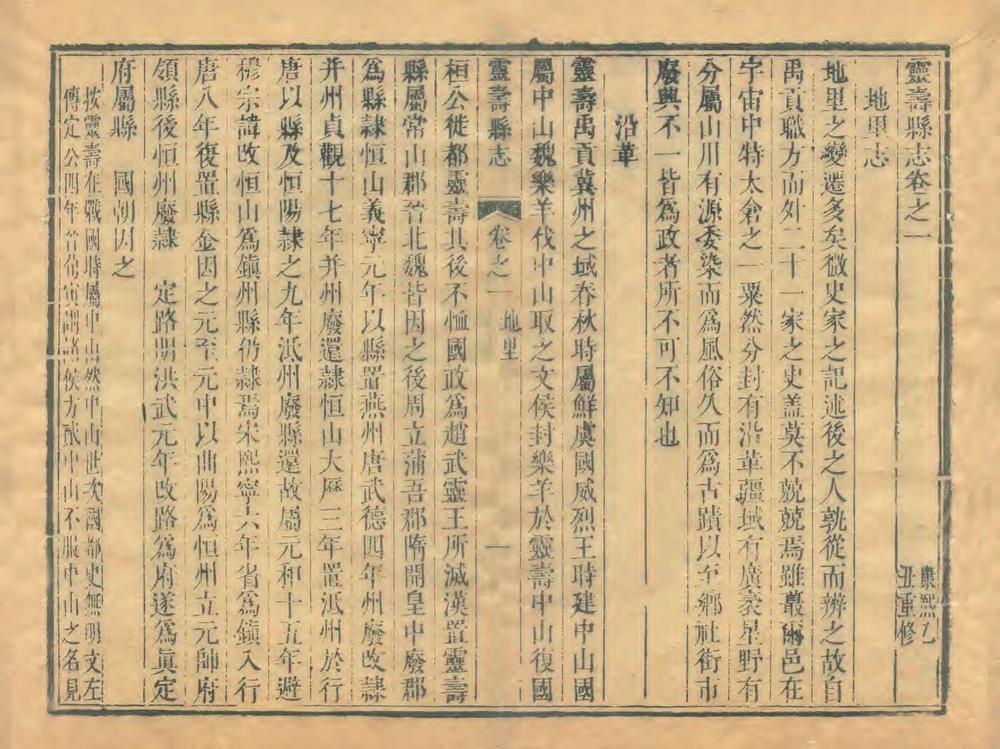 靈壽縣志卷之一
康熙乙
丑重修
地里志
地里之變遷多矣微史家之記述後之人孰從而辨之故自
禹貢職方而外二十一家之史盖莫不兢兢焉雖叢爾邑在
宇宙中特太倉之一粟然分封有沿革疆域有廣袤星野有
分屬山川有源委染而爲風俗久而爲古蹟以至鄉社街市
廢興不一皆爲政者所不可不知也
沿革
靈壽禹貢冀州之域春秋時屬鮮虞國威烈王時建中山國
屬中山魏樂羊伐中山取之文侯封樂羊於靈壽中山復國
靈壽縣志
卷之一
地里
一
桓公徙都靈壽其後不恤國政爲趙武靈王所滅漢置靈壽
縣屬常山郡晉北魏皆因之後周立蒲吾郡隋開皇中廢郡
爲縣隸恒山義寧元年以縣置燕州唐武德四年州廢改隸
并州貞觀十七年并州廢還隸恒山大曆三年置泜州於行
唐以縣及恒陽隸之九年泜州廢縣還故屬元和十五年避
穆宗諱改恒山爲鎮州縣仍隸焉宋熙寧六年省爲鎮入行
唐八年復置縣金因之元至元中以曲陽爲恒州立元帥府
領縣後恒州廢隸　定路明洪武元年改路爲府遂爲眞定
府屬縣　國朝因之
按靈壽在戰國時屬中山然中山世次國都史無明文左
傳定公四年晉荀寅謂諸侯方貳中山不服中山之名見